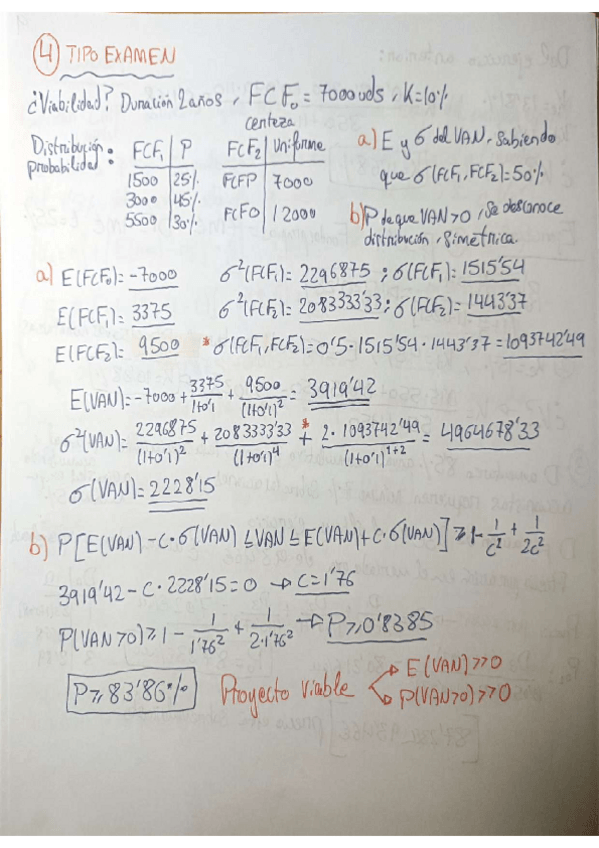 4 TIPO EXAMEN
¿Viabilidad? Duración 2 años, FCF₀ = 7000 uds, K=10%
certeza
Distribución probabilidad:
FCF₁ | P
1500 | 25%
3000 | 45%
5500 | 30%
FCF₂ | Uniforme
FCFP | 7000
FCFO | 12000
a) E y σ del VAN, sabiendo
que σ(FCF₁,FCF₂)=50%
b) P de que VAN>0, se desconoce
distribución, simétrica
a) E(FCF₀)= -7000 σ²(FCF₁)= 2296875 ; σ(FCF₁)= 1515'54
E(FCF₁)= 3375 σ²(FCF₂)= 2083333'33 ; σ(FCF₂)= 1443'37
E(FCF₂)= 9500 * σ(FCF₁,FCF₂)= 0'5·1515'54·1443'37 = 1093742'49
E(VAN)= -7000 + 3375/(1+0'1) + 9500/(1+0'1)² = 3919'42
σ²(VAN)= 2296875/(1+0'1)² + 2083333'33/(1+0'1)⁴ +* 2·1093742'49/(1+0'1)¹⁺² = 4964678'33
σ(VAN)= 2228'15
b) P[E(VAN) - C·σ(VAN) ≤ VAN ≤ E(VAN) + C·σ(VAN)] ≥ 1 - 1/c² + 1/2c²
3919'42 - C·2228'15 = 0 → C=1'76
P(VAN>0) ≥ 1 - 1/1'76² + 1/2·1'76² → P≥0'8385
P≥83'86% Proyecto viable → E(VAN)>>0
→ P(VAN>0)>>0